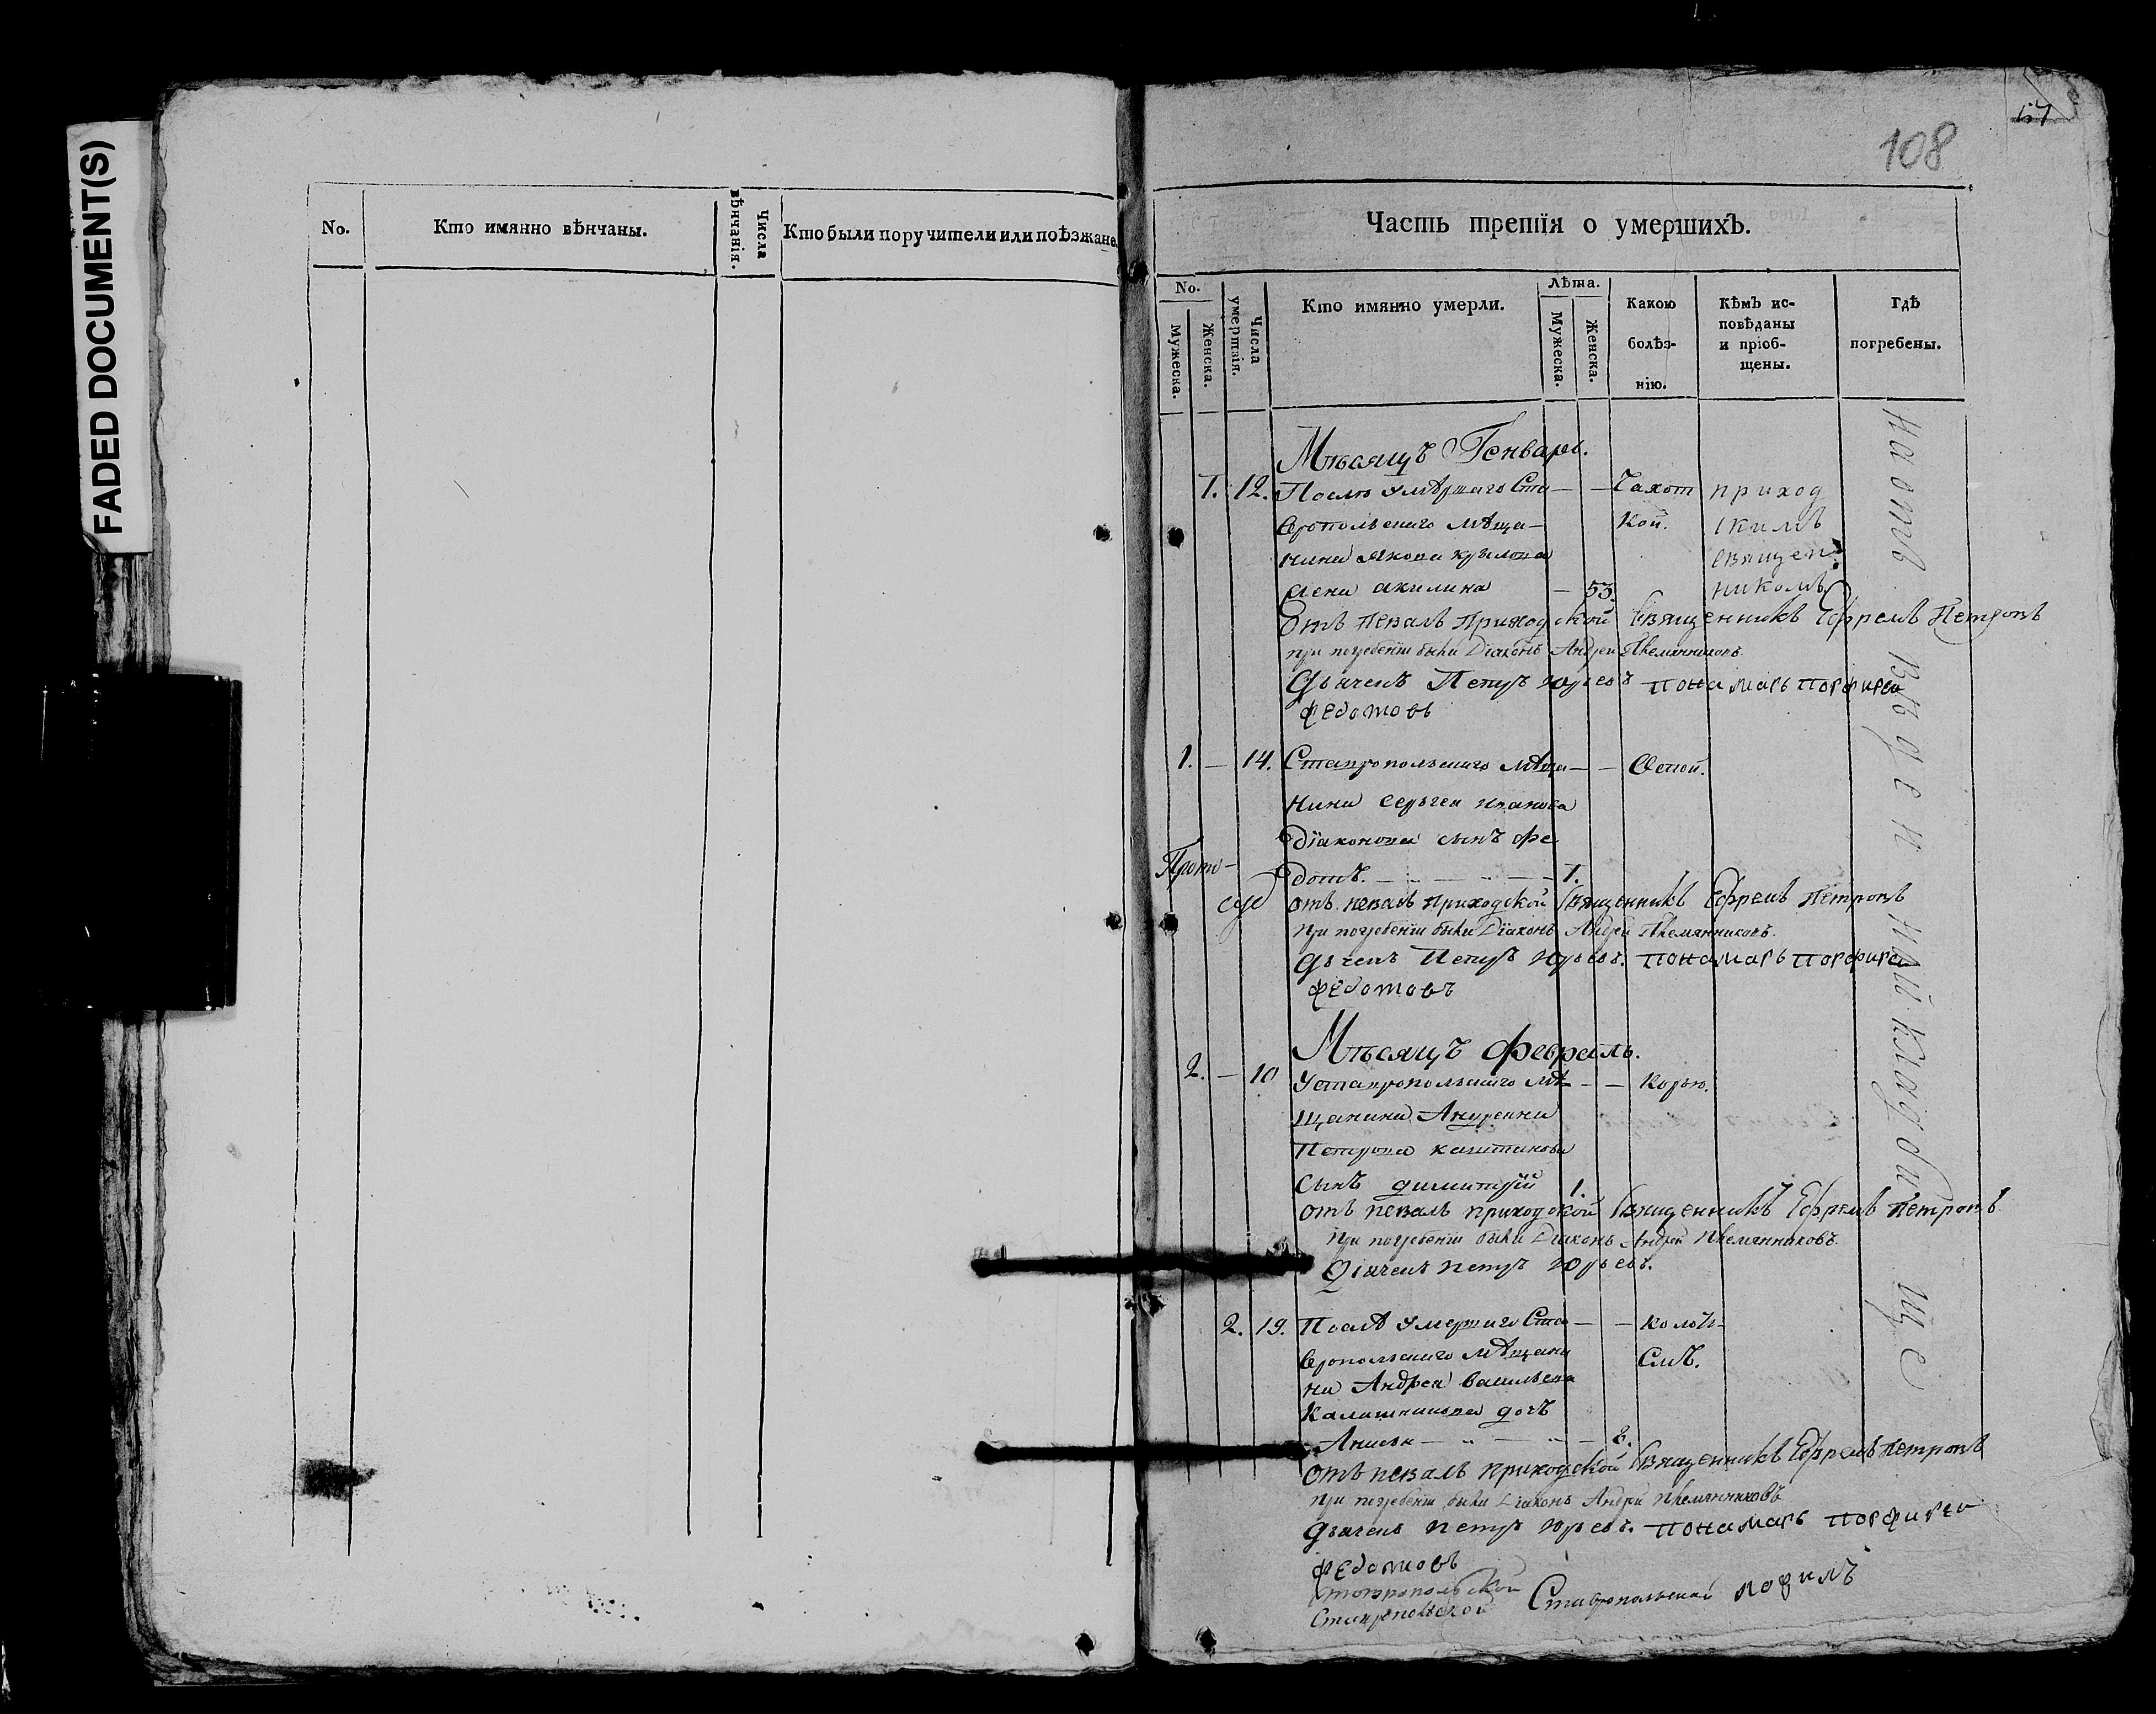 FADED DOCUMENT(S)
No.
Кто имянно вѣнчаны.
Числа
вѣнчанія.
Кто были поручители или поѣзжане.
108
Часть третія о умершихъ.
No.
Мужеска.
Женска.
Числа
умертвія.
Кто имянно умерли.
Лѣта.
Мужеска.
Женска.
Какою
болѣз-
нію.
Кѣмъ ис-
повѣданы
и пріоб-
щены.
Гдѣ
погребены.
Мѣсяцъ Генварь.
1. 12. Послѣ умѣршаго Ста — — Чахот приход
вропольскаго мѣща- кой. скимъ
нина Якова крылова священ
жена акилина — 53. никомъ
Отъ певалъ Приходской Священникъ Ефремъ Петровъ
при погребеніи были Діаконъ Андрей Племянниковъ.
Дьячекъ Петръ Юрьевъ Понамарь Порфирей
Федотовъ
1. — 14. Ставропольскаго мѣща — — Оспой.
нина Сергея иванова
Діаконова сынъ Фе
дотъ. 1.
отъ певалъ Приходской Священникъ Ефремъ Петровъ
При погребеніи были Діаконъ Андрей Племянниковъ.
Дьячекъ Петръ Юрьевъ. Понамарь Порфирей
Федотовъ
Прото-
Мѣсяцъ Февраль.
2. — 10 Уставропольскаго мѣ — — Корью.
щанина Андреяна
Петрова каштанова
Сынъ димитрій 1.
отъ певалъ приходской Священникъ Ефремъ Петровъ.
При погребеніи были Діаконъ Андрей Племянниковъ.
Діячекъ Петръ Юрьевъ.
2. 19. Послѣ умершаго Ста — — Колоть-
вропольскаго мѣщани емъ.
на Андрея Васильева
Калашникова дочь
Анисья 8.
Отъ певалъ приходской Священникъ Ефремъ Петровъ
При погребеніи были Діаконъ Андрей Племянниковъ
Дьячекъ Петръ Юрьевъ. Понамарь Порфирей
Федотовъ
Ставропольской
На отъ веденной кладбище